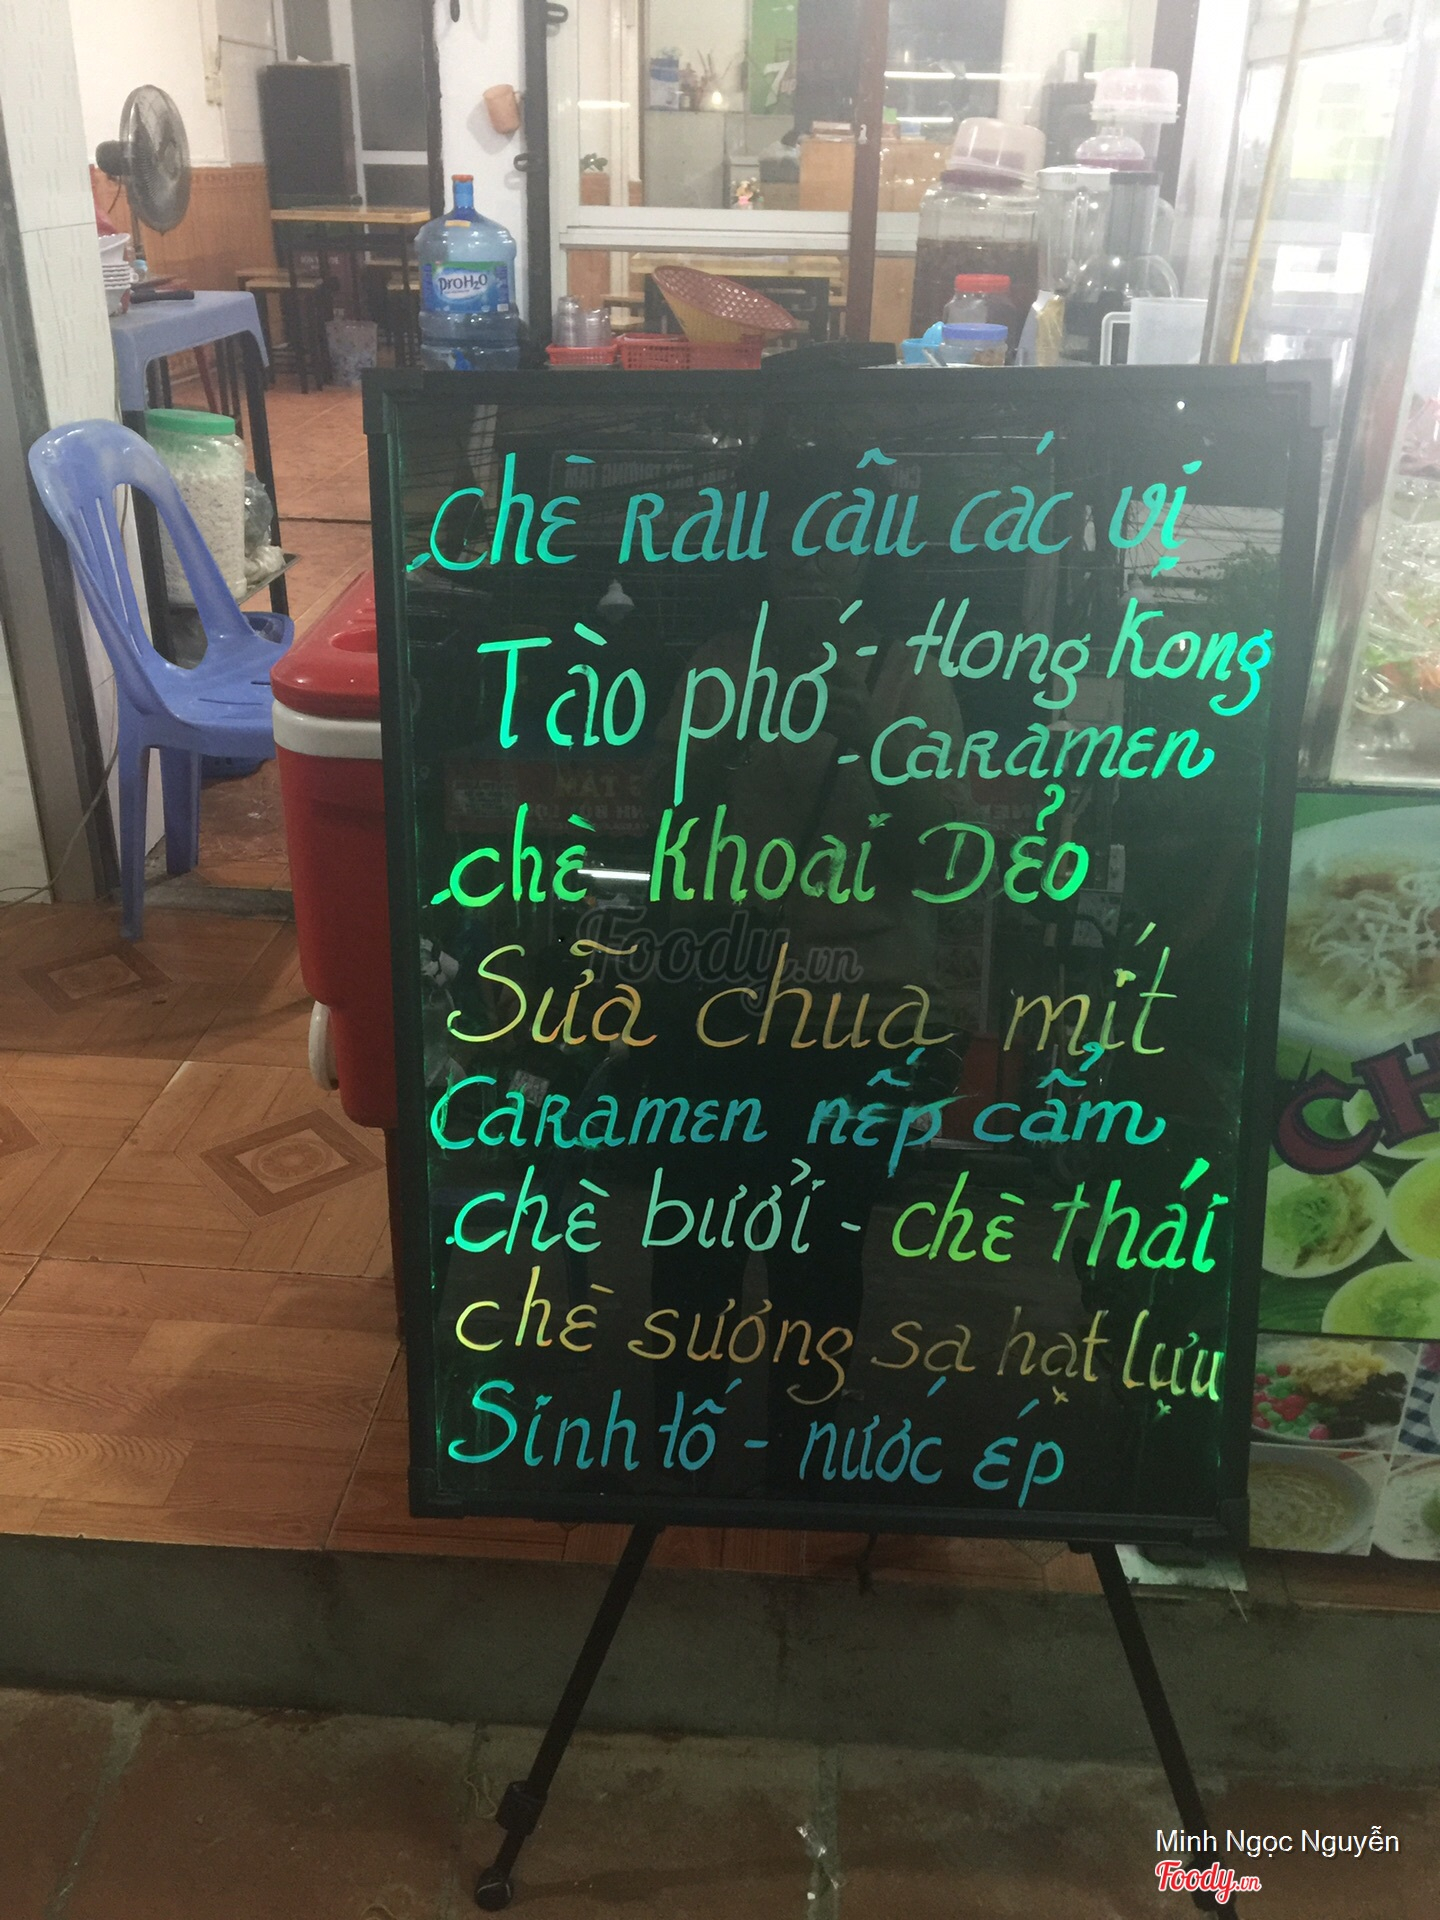 DroH2O
Chè Rau câu các vị
Tào phớ - Hong Kong
- Caramen
chè Khoai Dẻo
Sữa chua mít
Caramen nếp cẩm
chè bưởi - chè thái
chè sương sa hạt lựu
Sinh tố - nước ép
Foody.vn
Minh Ngọc Nguyễn
Foody.vn